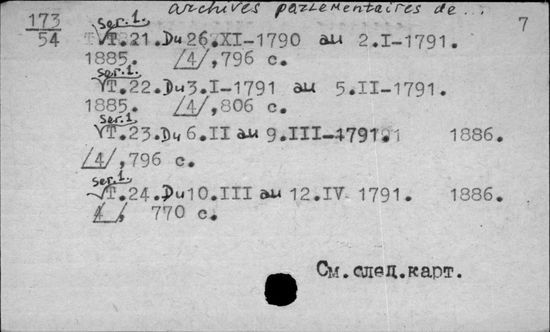 archives parlementaires de... 7
173
54
ser.1.
T.21.Du 26.XI-1790 au 2.I-1791.
1885. /4/,796 с.
ser.1.
T.22.Du 3.I-1791 au 5.II-1791.
1885. /4/,806 с.
ser.1
T.23.Du 6.II au 9.III-1791. 1886.
/4/,796 с.
ser.1.
T.24.Du 10.III au 12.IV 1791. 1886.
/4/, 770 с.
См.след.карт.